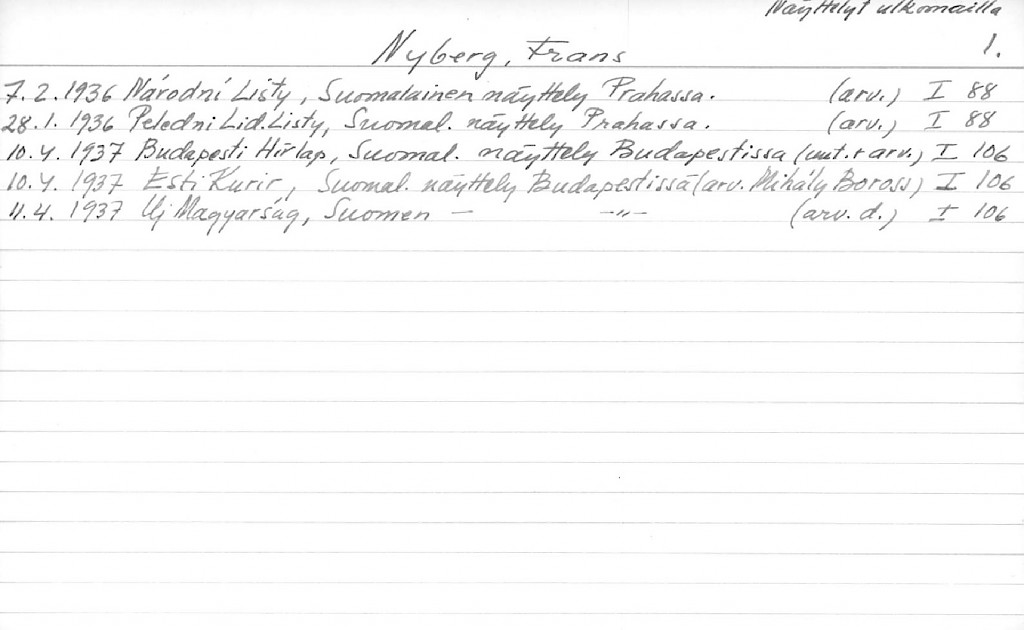 Näyttelyt ulkomailla
1.
Nyberg, Frans
7.2.1936 Národní Listy, Suomalainen näyttely Prahassa. (arv.) I 88
28.1.1936 Peledni Lid. Listy, Suomal. näyttely Prahassa. (arv.) I 88
10.4.1937 Budapesti Hírlap, Suomal. näyttely Budapestissa (uut. + arv.) I 106
10.4.1937 Esti Kurir, Suomal. näyttely Budapestissa (arv. Mihály Boross) I 106
11.4.1937 Uj Magyarság, Suomen — —"— (arv. d.) I 106